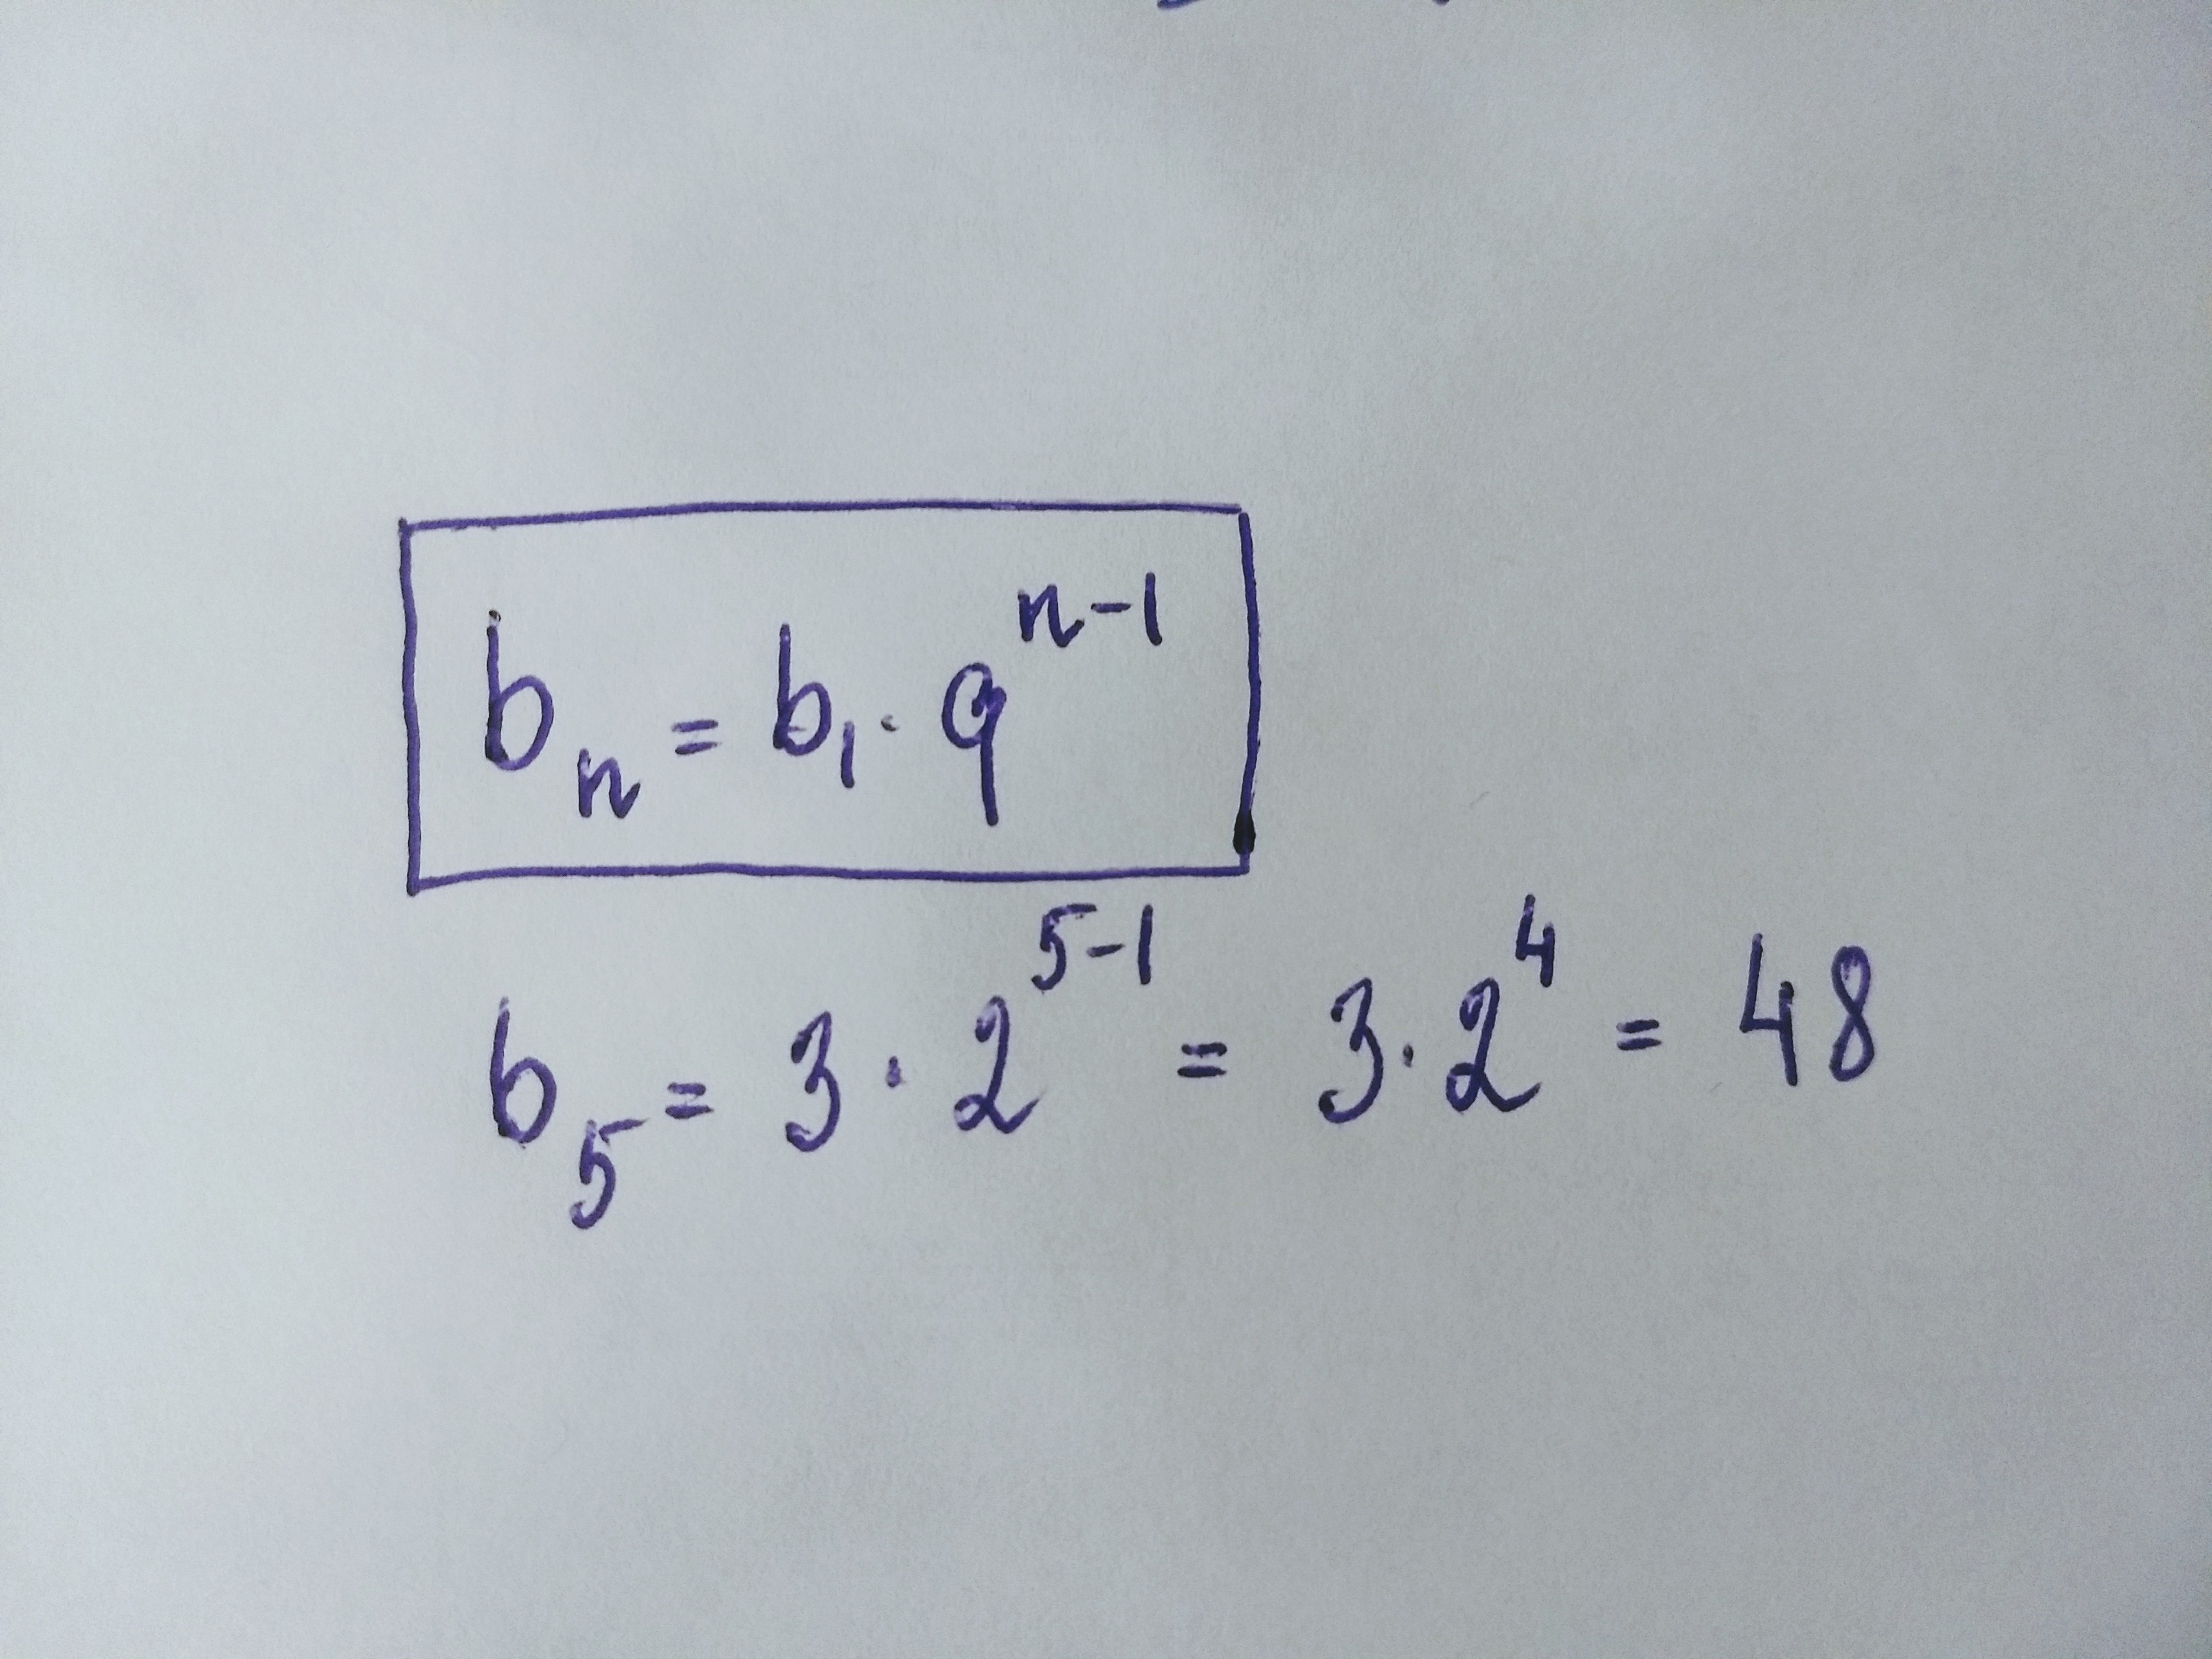 bₙ = b₁ · qⁿ⁻¹
b₅ = 3 · 2⁵⁻¹ = 3 · 2⁴ = 48